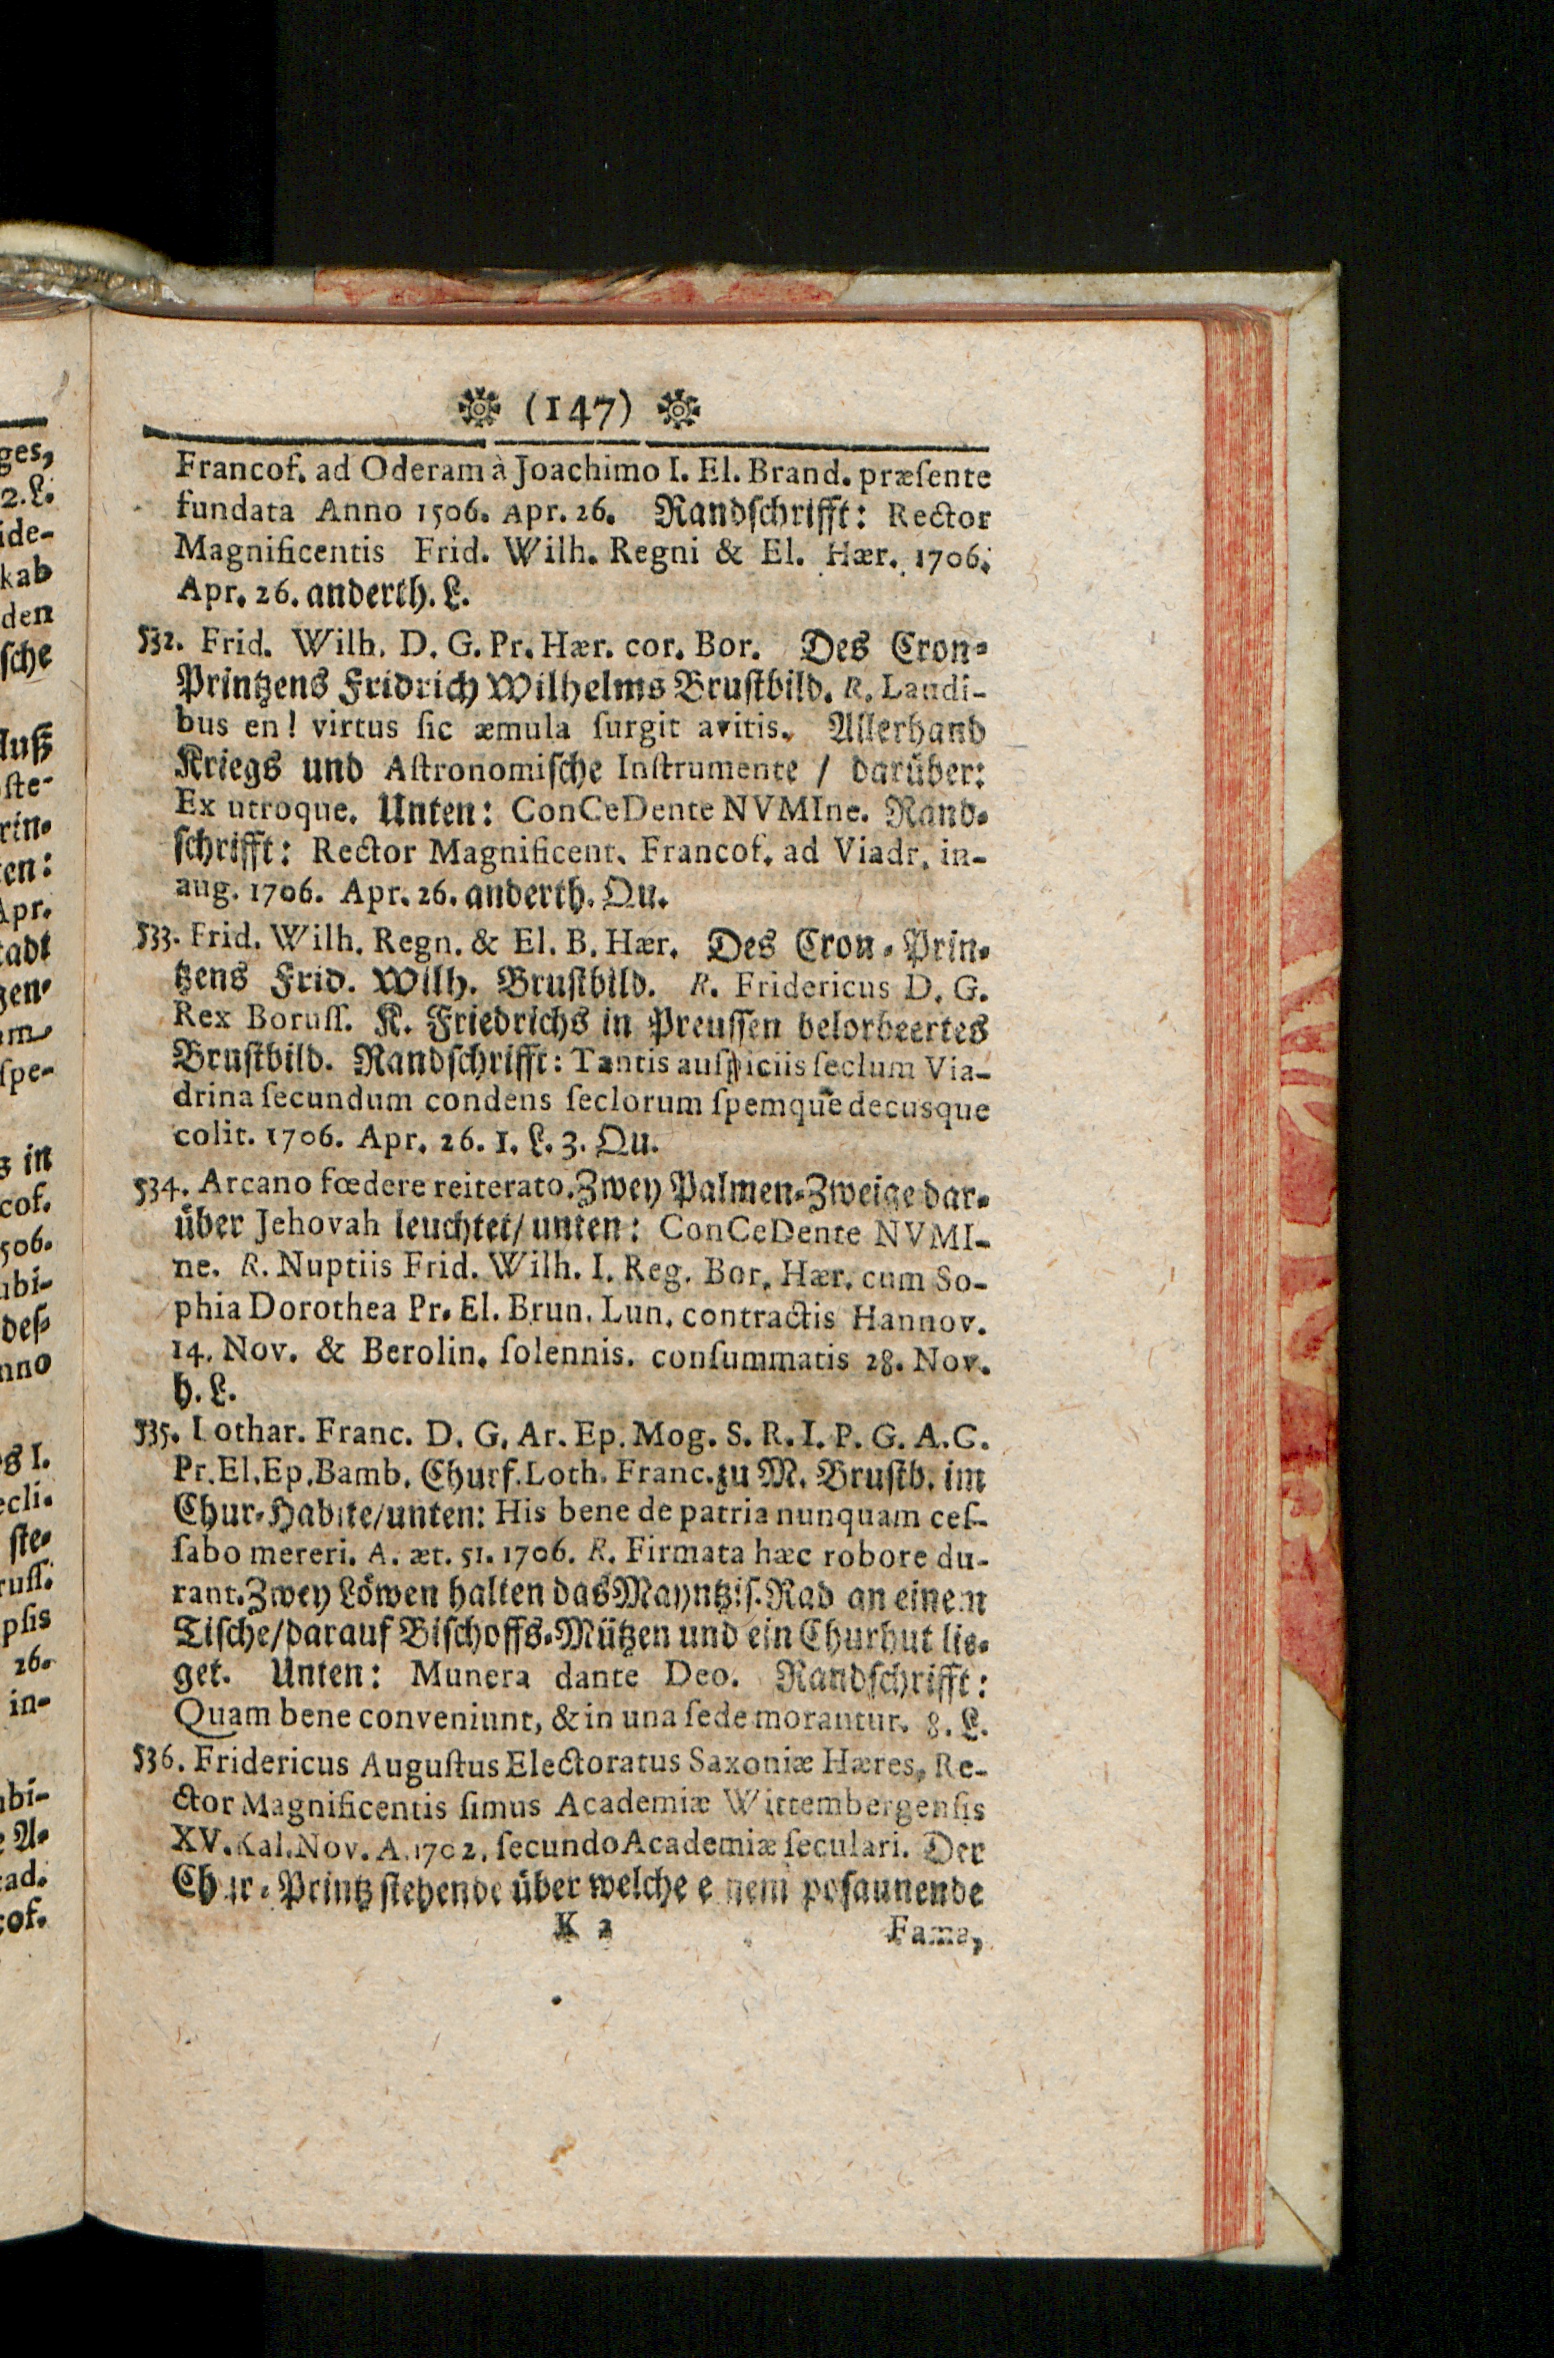 (147)
Francof. ad Oderam à Joachimo I. El. Brand. præſente
fundata Anno 1506. Apr. 26. Randſchrifft: Rector
Magnificentis Frid. Wilh. Regni & El. Hær. 1706.
Apr. 26. anderth. L.
532. Frid. Wilh. D. G. Pr. Hær. cor. Bor. Des Cron-
Printzens Fridrich Wilhelms Bruſtbild. R. Laudi-
bus en! virtus ſic æmula ſurgit avitis. Allerhand
Kriegs und Aſtronomiſche Inſtrumente / darüber:
Ex utroque. Unten: ConCeDente NVMIne. Rand-
ſchrifft: Rector Magnificent. Francof. ad Viadr. in-
aug. 1706. Apr. 26. anderth. Qu.
533. Frid. Wilh. Regn. & El. B. Hær. Des Cron-Prin-
tzens Frid. Wilh. Bruſtbild. R. Fridericus D. G.
Rex Boruſſ. K. Friedrichs in Preuſſen belorbeertes
Bruſtbild. Randſchrifft: Tantis auſpiciis ſeclum Via-
drina ſecundum condens ſeclorum ſpemque decusque
colit. 1706. Apr. 26. 1. L. 3. Qu.
534. Arcano fœdere reiterato. Zwey Palmen-Zweige dar-
über Jehovah leuchtet/ unten: ConCeDente NVMI-
ne. R. Nuptiis Frid. Wilh. I. Reg. Bor. Hær. cum So-
phia Dorothea Pr. El. Brun. Lun. contractis Hannov.
14. Nov. & Berolin. ſolennis. conſummatis 28. Nov.
h. L.
535. Lothar. Franc. D. G. Ar. Ep. Mog. S. R. I. P. G. A. C.
Pr. El. Ep. Bamb. Churf. Loth. Franc. zu M. Bruſtb. im
Chur-Habite/ unten: His bene de patria nunquam ceſ-
ſabo mereri. A. æt. 51. 1706. R. Firmata hæc robore du-
rant. Zwey Löwen halten das Mayntziſ. Rad an einem
Tiſche/ darauf Biſchoffs-Mützen und ein Churhut lie-
get. Unten: Munera dante Deo. Randſchrifft:
Quam bene conveniunt, & in una ſede morantur. 8. L.
536. Fridericus Auguſtus Electoratus Saxoniæ Hæres, Re-
ctor Magnificentis ſimus Academiæ Wittembergenſis
XV. Kal. Nov. A. 1702. ſecundo Academiæ ſeculari. Der
Chur-Printz ſtehende über welche einem poſaunende
K 2 Fama,